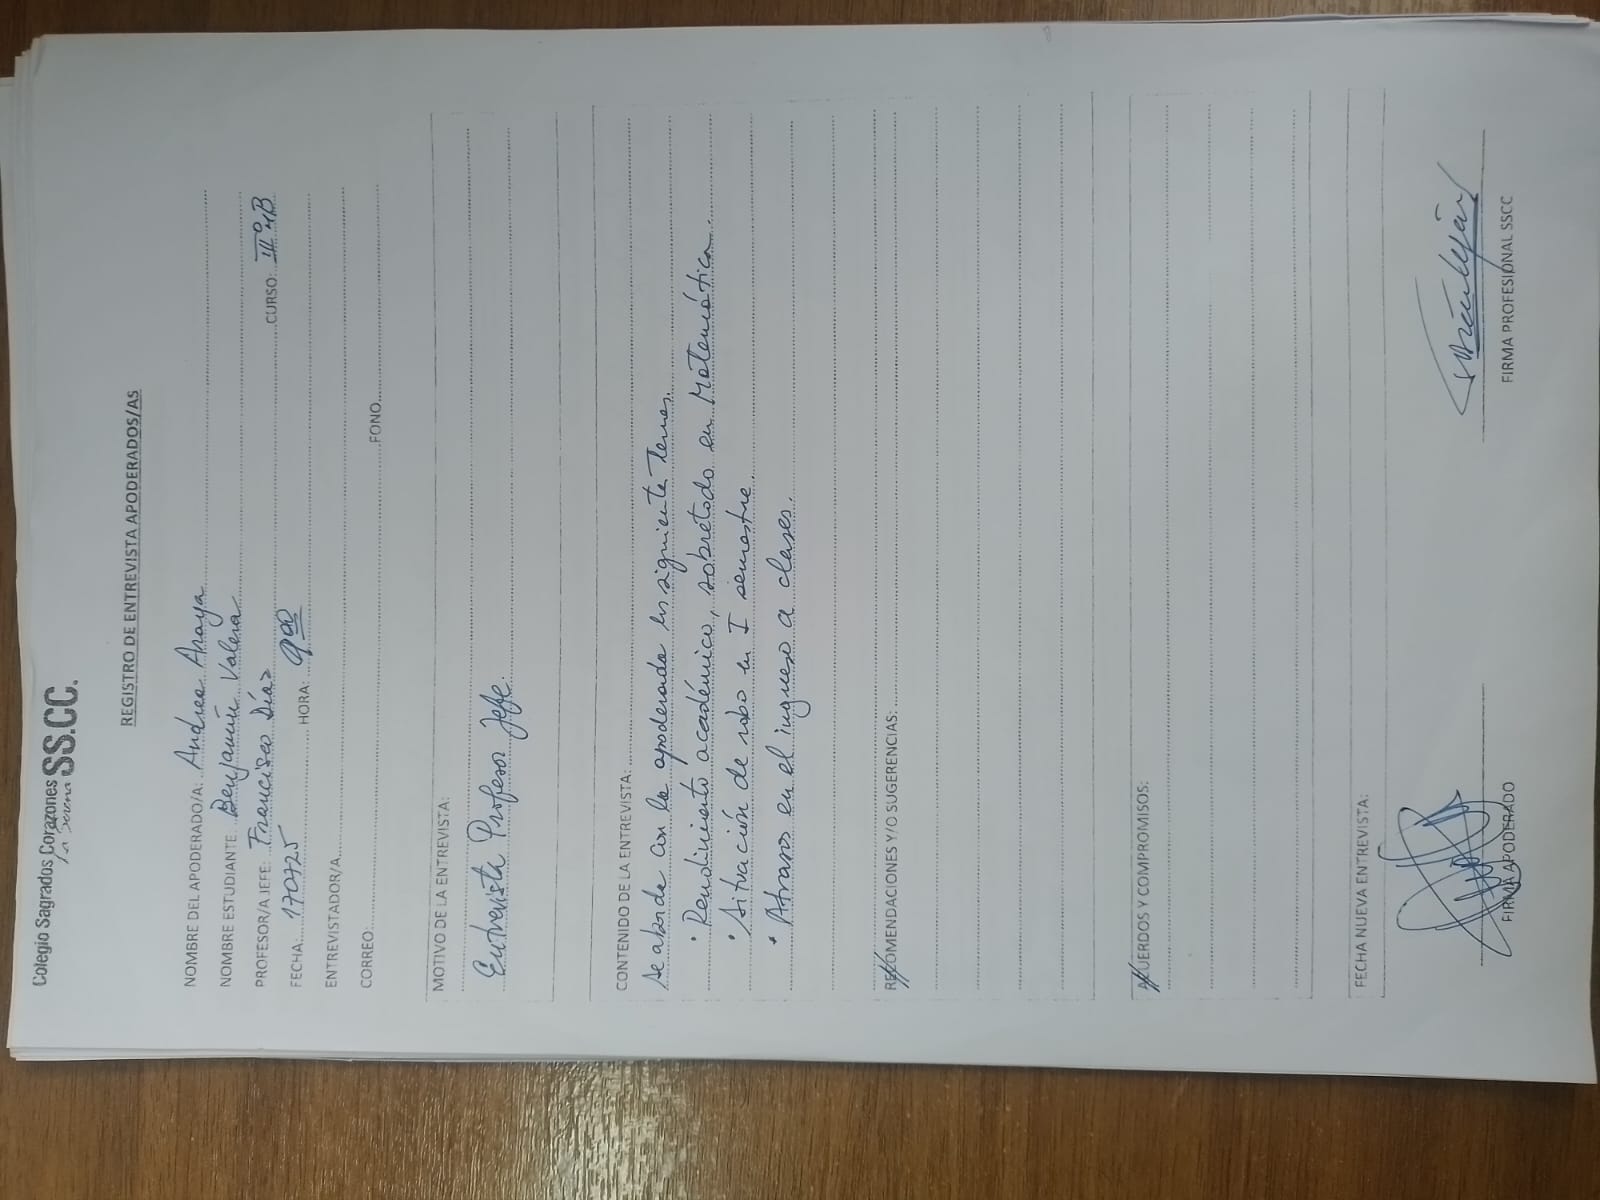 Colegio Sagrados Corazones SS.CC.
La Serena
REGISTRO DE ENTREVISTA APODERADOS/AS
NOMBRE DEL APODERADO/A: Andrea Araya
NOMBRE ESTUDIANTE Benjamín Valera
PROFESOR/A JEFE: Francisco Díaz CURSO: IIIº4B
FECHA: 170725 HORA: 9:00
ENTREVISTADOR/A
CORREO: FONO
MOTIVO DE LA ENTREVISTA:
Entrevista Profesor Jefe.
CONTENIDO DE LA ENTREVISTA:
Se aborda con la apoderada los siguiente temas
• Rendimiento académico, sobretodo en Matemática
• Situación de robo en I semestre
• Atrasos en el ingreso a clases.
RECOMENDACIONES Y/O SUGERENCIAS:
ACUERDOS Y COMPROMISOS:
FECHA NUEVA ENTREVISTA:
FIRMA APODERADO FIRMA PROFESIONAL SSCC